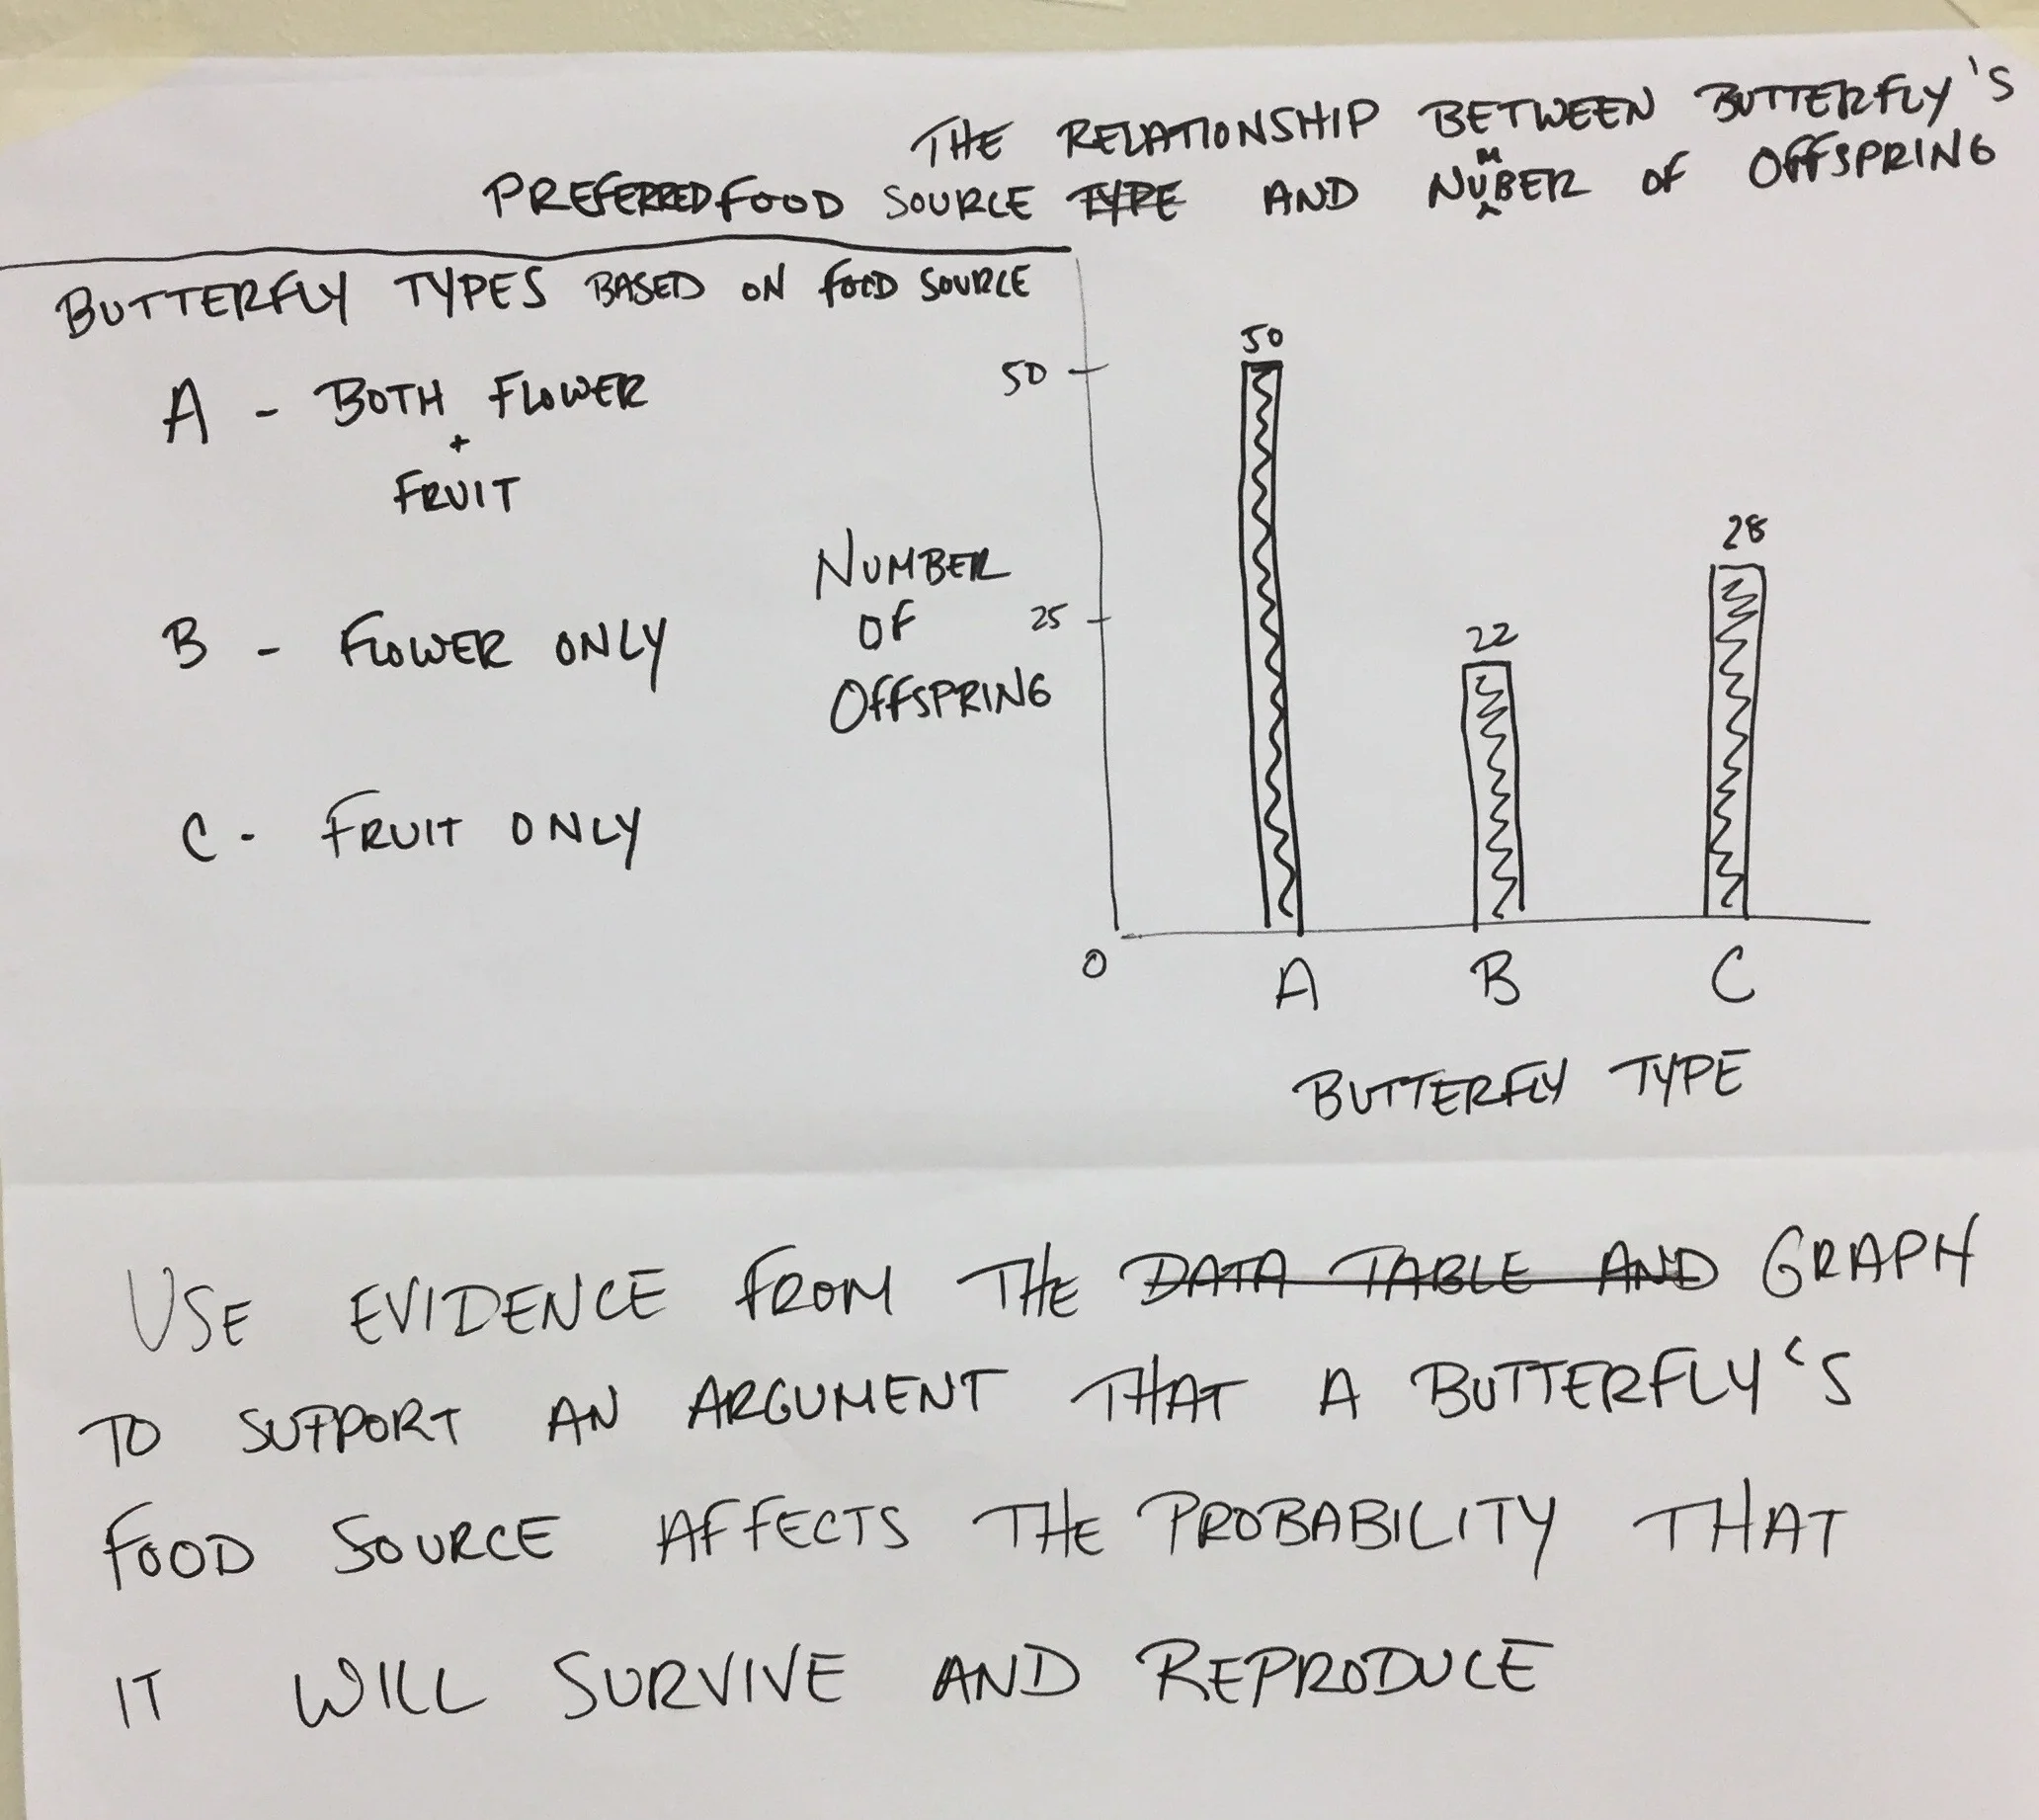 THE RELATIONSHIP BETWEEN BUTTERFLY'S
PREFERRED FOOD SOURCE TYPE AND NUMBER OF OFFSPRING
BUTTERFLY TYPES BASED ON FOOD SOURCE
A - BOTH FLOWER
+
FRUIT
B - FLOWER ONLY
C - FRUIT ONLY
NUMBER
OF
OFFSPRING
50
25
0
50
22
28
A B C
BUTTERFLY TYPE
USE EVIDENCE FROM THE DATA TABLE AND GRAPH
TO SUPPORT AN ARGUMENT THAT A BUTTERFLY'S
FOOD SOURCE AFFECTS THE PROBABILITY THAT
IT WILL SURVIVE AND REPRODUCE